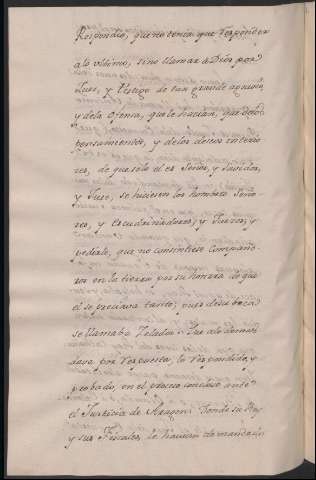 Respondio, que no tenia que responder
a lo ultimo, sino llamar a Dios por
Juez, y testigo de tan grande agravio,
y dela ofensa, que le hacian, que delos
pensamientos, y delos deseos interio
res, de que solo el es Señor, y Sabidor,
y Juez, se hiciesen los hombres Seño
res, y Escudriñadores, y Juezes; y
pedirle, que no consintiese Compañe-
ros en la tierra por su honrra de que
el se preciava tanto; pues de su boca
se llamaba Zelador. Que alo demas
dava por respuesta lo respondido, y
probado, en el processo causado ante
el Justicia de Aragon: donde su Rey
y sus Fiscales, le havian demandado